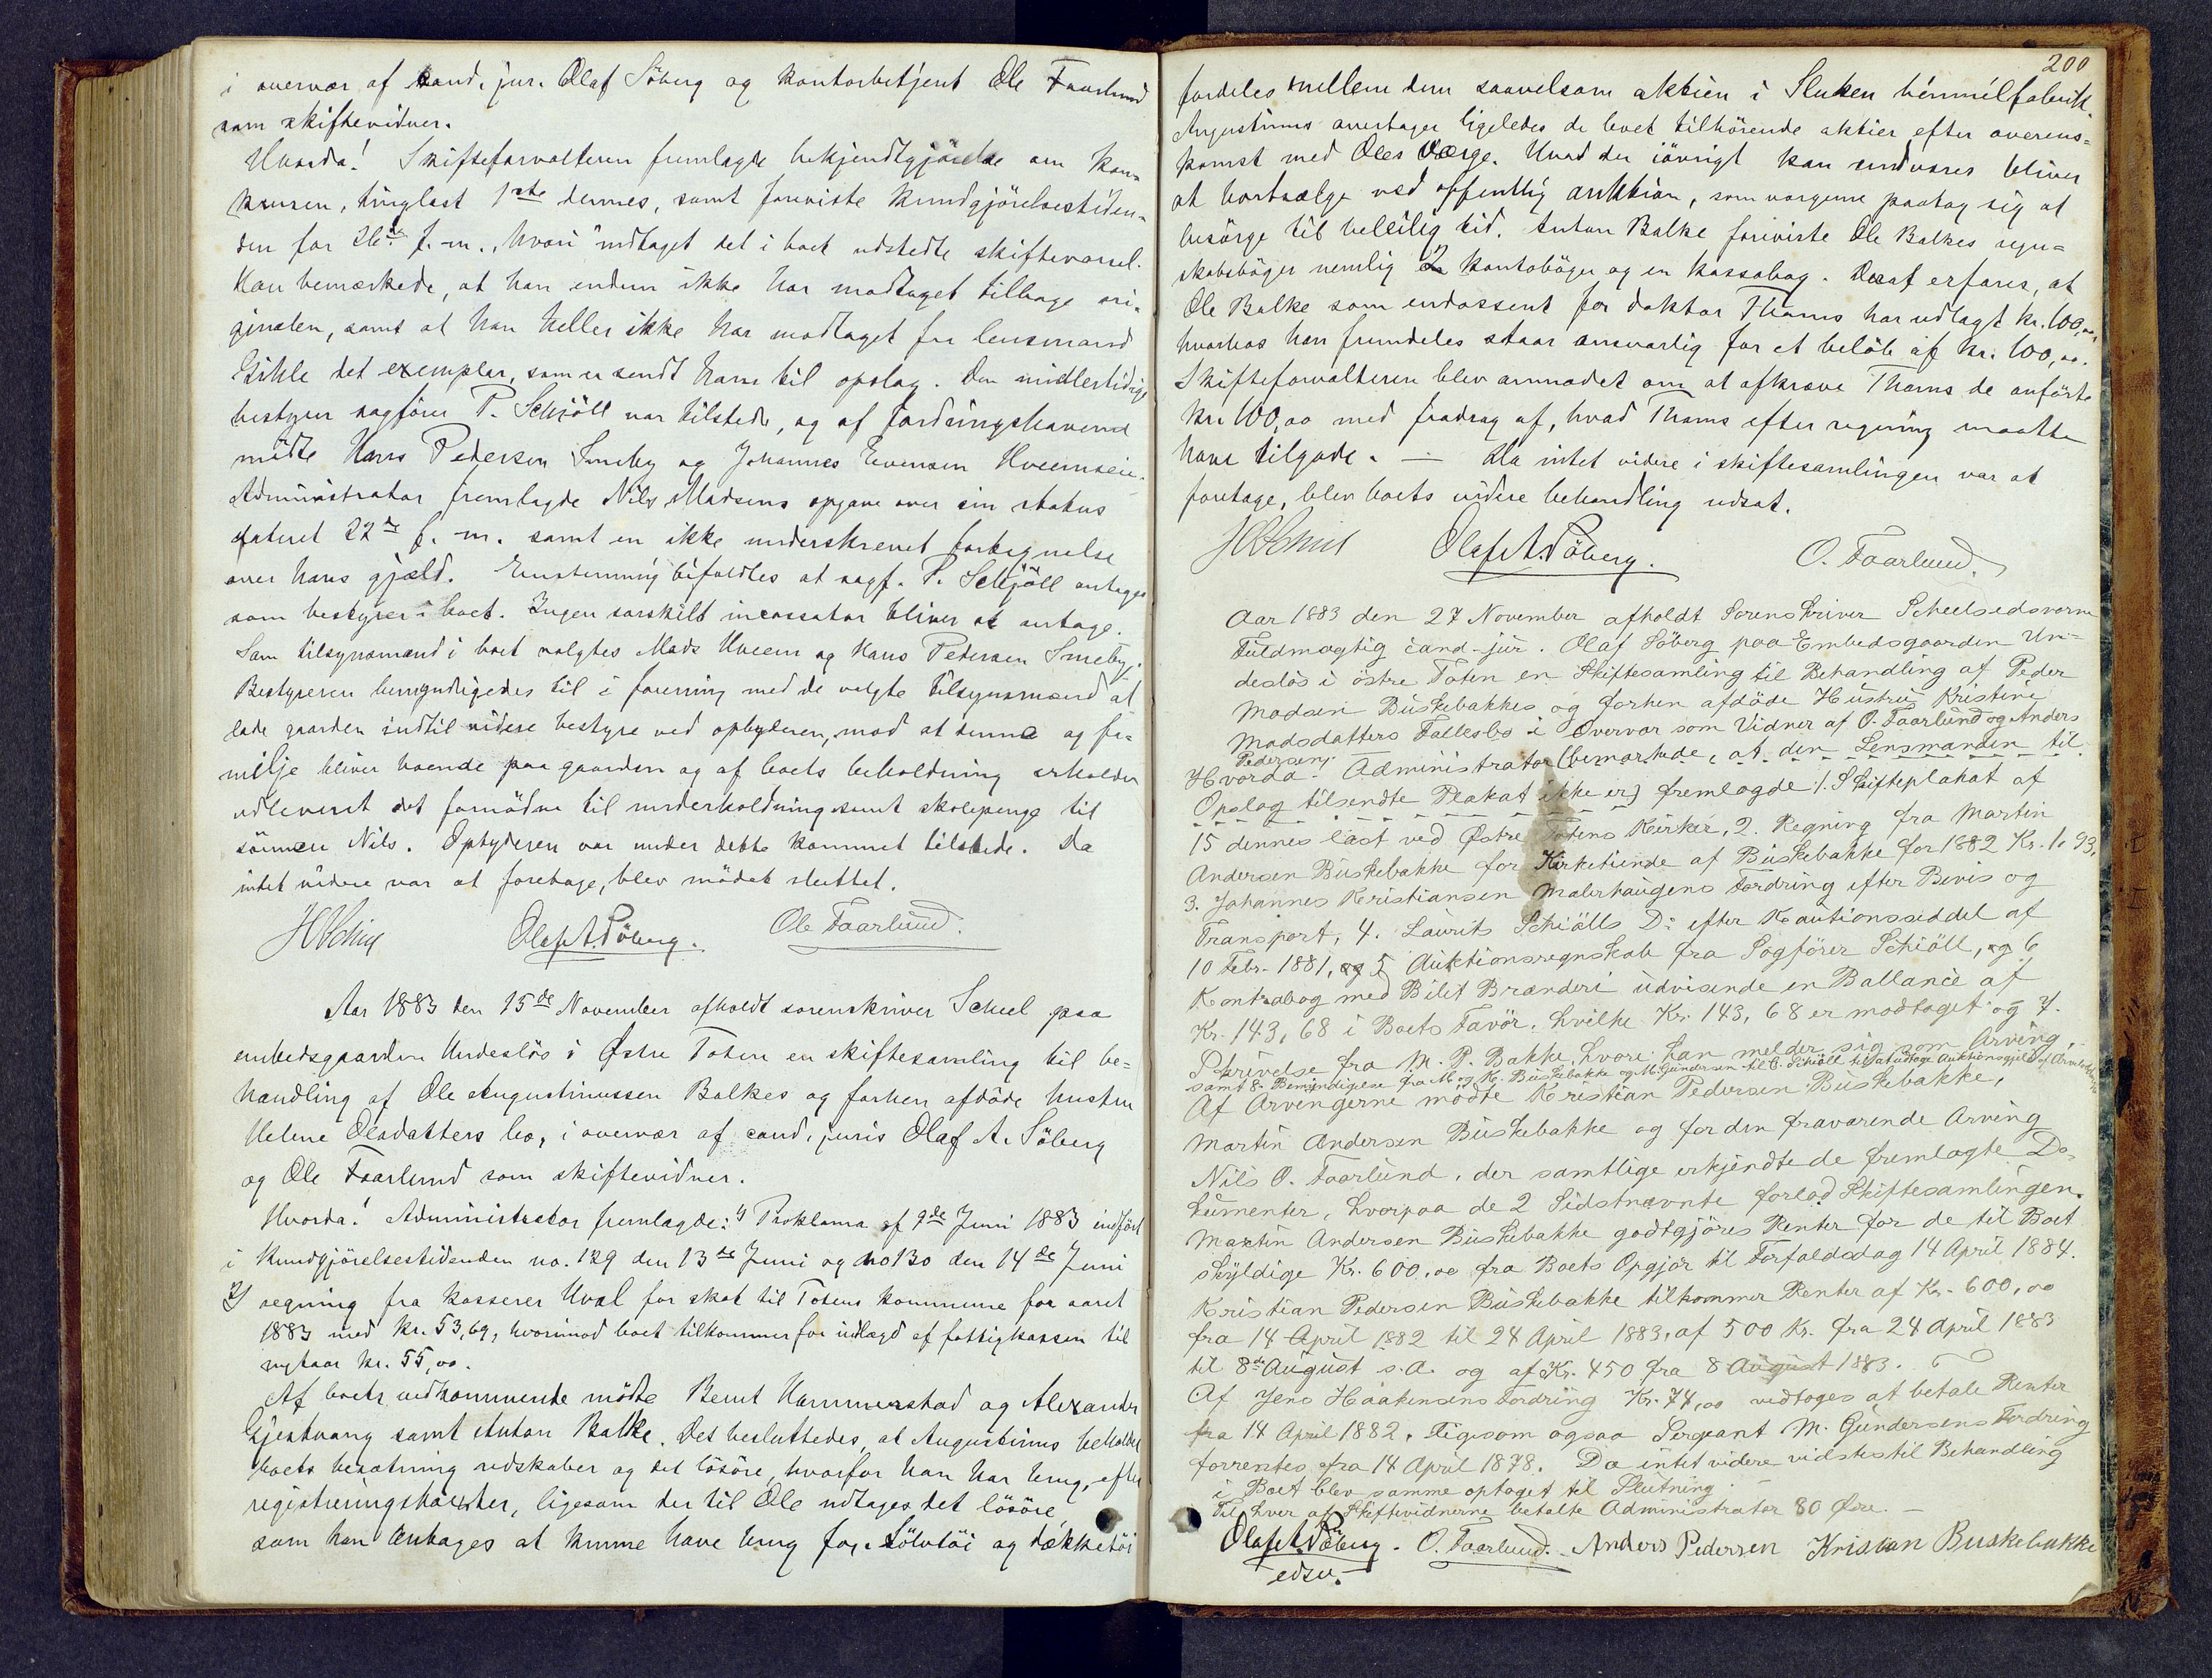 i overvær af cand. jur. Olaf Söberg og kontorbetjent Ole Faarlund
som skiftevidner.
Hvorda! Skifteforvalteren fremlagde bekjendtgjörelse om kon-
kursen, tinglæst 1ste dennes, samt foreviste kundgjörelsestiden-
den for 26de f. m., hvori indtaget det i boet udstedte skiftevarsel.
Han bemærkede, at han endnu ikke har modtaget tilbage ori-
ginalen, samt at han heller ikke har modtaget fra lensmand
Gihle det exemplar, som er sendt ham til opslag. Den midlertidige
bestyrer sagförer P. Schjöll var tilstede, og af fordringshaverne
mödte Hans Pedersen Smeby og Johannes Evensen Hveemseie.
Administrator fremlagde Nils Madsens opgave over sin status
dateret 22de f. m. samt en ikke underskrevet fortegnelse
over hans gjæld. Enstemmig bifaldtes at sagf. P. Schjöll antages
som bestyrer i boet. Ingen særskilt incassator bliver at antage.
Som tilsynsmænd i boet valgtes Mads Hveem og Hans Pedersen Smeby.
Bestyreren bemyndigedes til i forening med de valgte tilsynsmænd at
lade gaarden indtil videre bestyre ved opbyderen, mod at denne og fa-
milje bliver boende paa gaarden og af boets beholdning erholder
udleveret det fornödne til underholdning samt skolepenge til
sönnen Nils. Opbyderen var under dette kommet tilstede. Da
intet videre var at foretage, blev mödet sluttet.
HScheel Olaf A. Söberg. Ole Faarlund.
Aar 1883 den 15de November afholdt sorenskriver Scheel paa
embedsgaarden Undeslös i Østre Toten en skiftesamling til be-
handling af Ole Augustinussen Balkes og forhen afdöde hustru
Helene Olsdatters bo, i overvær af cand. juris Olaf A. Söberg
og Ole Faarlund som skiftevidner.
Hvorda! Administrator fremlagde: 1) Proklama af 9de Juni 1883 indfört
i Kundgjörelsestidenden no. 129 den 13de Juni og no 130 den 14de Juni
2) regning fra kasserer Hval for skat til Totens kommune for aaret
1883 med kr. 53,69, hvorimod boet tilkommer for indlagd af fattigkassen til
nytaar kr. 55,00.
Af boets vedkommende mödte Bernt Hammerstad og Alexander
Gjestvang samt Anton Balke. Det besluttedes, at Augustinus beholder
boets besætning redskaber og det lösöre, hvorfor han har brug, efter
registreringstaxter, ligesom der til Ole udtages det lösöre,
som han antages at kunne have brug for. Sölvtöi og dækketöi
200
fordeles mellem dem saavelsom aktien i Sluken benmelfabrik.
Augustinus overtager ligeledes de boet tilhörende aktier efter overens-
komst med Oles værge. Hvad der iövrigt kan undværes bliver
at bortsælge ved offentlig auktion, som værgerne paatog sig at
besörge til beleilig tid. Anton Balke foreviste Ole Balkes regn-
skabsböger nemlig 2 kontoböger og en kassabog. Deraf erfares, at
Ole Balke som endossent for doktor Thams har udlagt kr. 100,00,
hvorhos han fremdeles staar ansvarlig for et belöb af kr. 100,00.
Skifteforvalteren blev anmodet om at afkræve Thams de anförte
kr. 100,00 med fradrag af, hvad Thams efter regning maatte
have tilgode. — Da intet videre i skiftesamlingen var at
foretage, blev boets videre behandling udsat.
HScheel Olaf A. Söberg. O. Faarlund.
Aar 1883 den 27 November afholdt Sorenskriver Scheels edsvorne
Fuldmægtig cand-jur. Olaf Söberg paa Embedsgaarden Un-
deslös i östre Toten en Skiftesamling til Behandling af Peder
Madsen Buskebakkes og forhen afdöde Hustru Kristine
Madsdatters Fællesbo i Overvær som Vidner af O. Faarlund og Anders
Pedersen.
Hvorda. Administrator (bemærkede, at den Lensmanden til
Opslag tilsendte Plakat ikke er) fremlagde 1. Skifteplakat af
15 dennes læst ved Østre Totens Kirke, 2. Regning fra Martin
Andersen Buskebakke for Kirketiende af Buskebakke for 1882 Kr. 1,93,
3. Johannes Kristiansen Malerhaugens Fordring efter Bevis og
Transport, 4. Laurits Schiölls Do efter Kautionsseddel af
10 Febr. 1881, og 5 Auktionsregnskab fra Sagförer Schiöll, og 6
Kontrabog med Bilit Brænderi udvisende en Ballance af
Kr. 143,68 i Boets Favör. hvilke Kr. 143,68 er modtaget og 7.
Skrivelse fra M. P. Bakke, hvori han melder sig som Arving,
samt 8. Bemyndigelse fra M. og K. Buskebakke og M. Gundersen til C. Schiöll til at udtage Auktionsgjeld
Af Arvingerne mödte Kristian Pedersen Buskebakke,
Martin Andersen Buskebakke og for den fraværende Arving
Nils O. Faarlund, der samtlige erkjendte de fremlagte Do-
kumenter, hvorpaa de 2 Sidstnævnte forlod Skiftesamlingen.
Martin Andersen Buskebakke godtgjöres Renter for de til Boet
skyldige Kr. 600,00 fra Boets Opgjör til Forfaldsdag 14 April 1884.
Kristian Pedersen Buskebakke tilkommer Renter af Kr. 600,00
fra 14 April 1882 til 24 April 1883, af 500 Kr. fra 24 April 1883
til 8de August s. A. og af Kr. 450 fra 8 August 1883.
Af Jens Haakensens Fordring Kr. 74,00 vedtoges at betale Renter
fra 14 April 1882, ligesom ogsaa Sergeant M. Gundersens Fordring
forrentes fra 14 April 1878. Da intet videre vidstes til Behandling
i Boet blev samme optaget til Slutning.
Til hver af Skiftevidnerne betalte Administrator 80 Øre.
Olaf A. Söberg. O. Faarlund. Anders Pedersen Kristian Buskebakke
edsv.